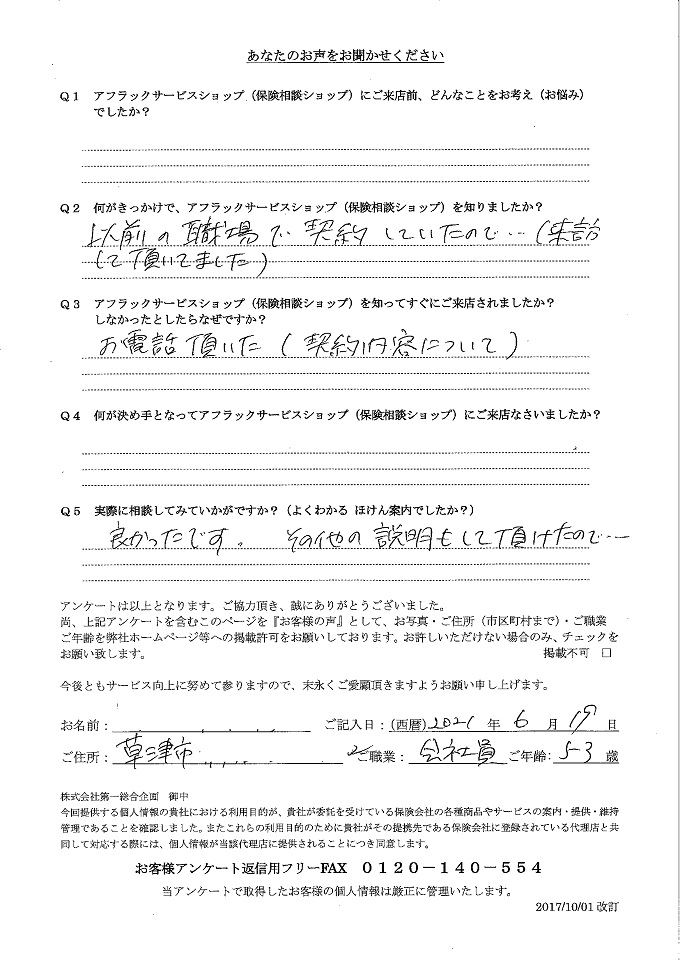 あなたのお声をお聞かせください
Q1 アフラックサービスショップ（保険相談ショップ）にご来店前、どんなことをお考え（お悩み）
でしたか？
Q2 何がきっかけで、アフラックサービスショップ（保険相談ショップ）を知りましたか？
以前の職場で契約していたので…（来訪
して頂いてました）
Q3 アフラックサービスショップ（保険相談ショップ）を知ってすぐにご来店されましたか？
しなかったとしたらなぜですか？
お電話頂いた（契約内容について）
Q4 何が決め手となってアフラックサービスショップ（保険相談ショップ）にご来店なさいましたか？
Q5 実際に相談してみていかがですか？（よくわかる ほけん案内でしたか？）
良かったです。 その他の説明もして頂けたので…
アンケートは以上となります。ご協力頂き、誠にありがとうございました。
尚、上記アンケートを含むこのページを『お客様の声』として、お写真・ご住所（市区町村まで）・ご職業
ご年齢を弊社ホームページ等への掲載許可をお願いしております。お許しいただけない場合のみ、チェックを
お願い致します。 掲載不可 □
今後ともサービス向上に努めて参りますので、末永くご愛顧頂きますようお願い申し上げます。
お名前： ご記入日：（西暦）2021 年 6 月 19 日
ご住所： 草津市 ご職業： 会社員 ご年齢： 53 歳
株式会社第一総合企画 御中
今回提供する個人情報の貴社における利用目的が、貴社が委託を受けている保険会社の各種商品やサービスの案内・提供・維持
管理であることを確認しました。またこれらの利用目的のために貴社がその提携先である保険会社に登録されている代理店と共
同して対応する際には、個人情報が当該代理店に提供されることにつき同意します。
お客様アンケート返信用フリーFAX 0120－140－554
当アンケートで取得したお客様の個人情報は厳正に管理いたします。
2017/10/01 改訂